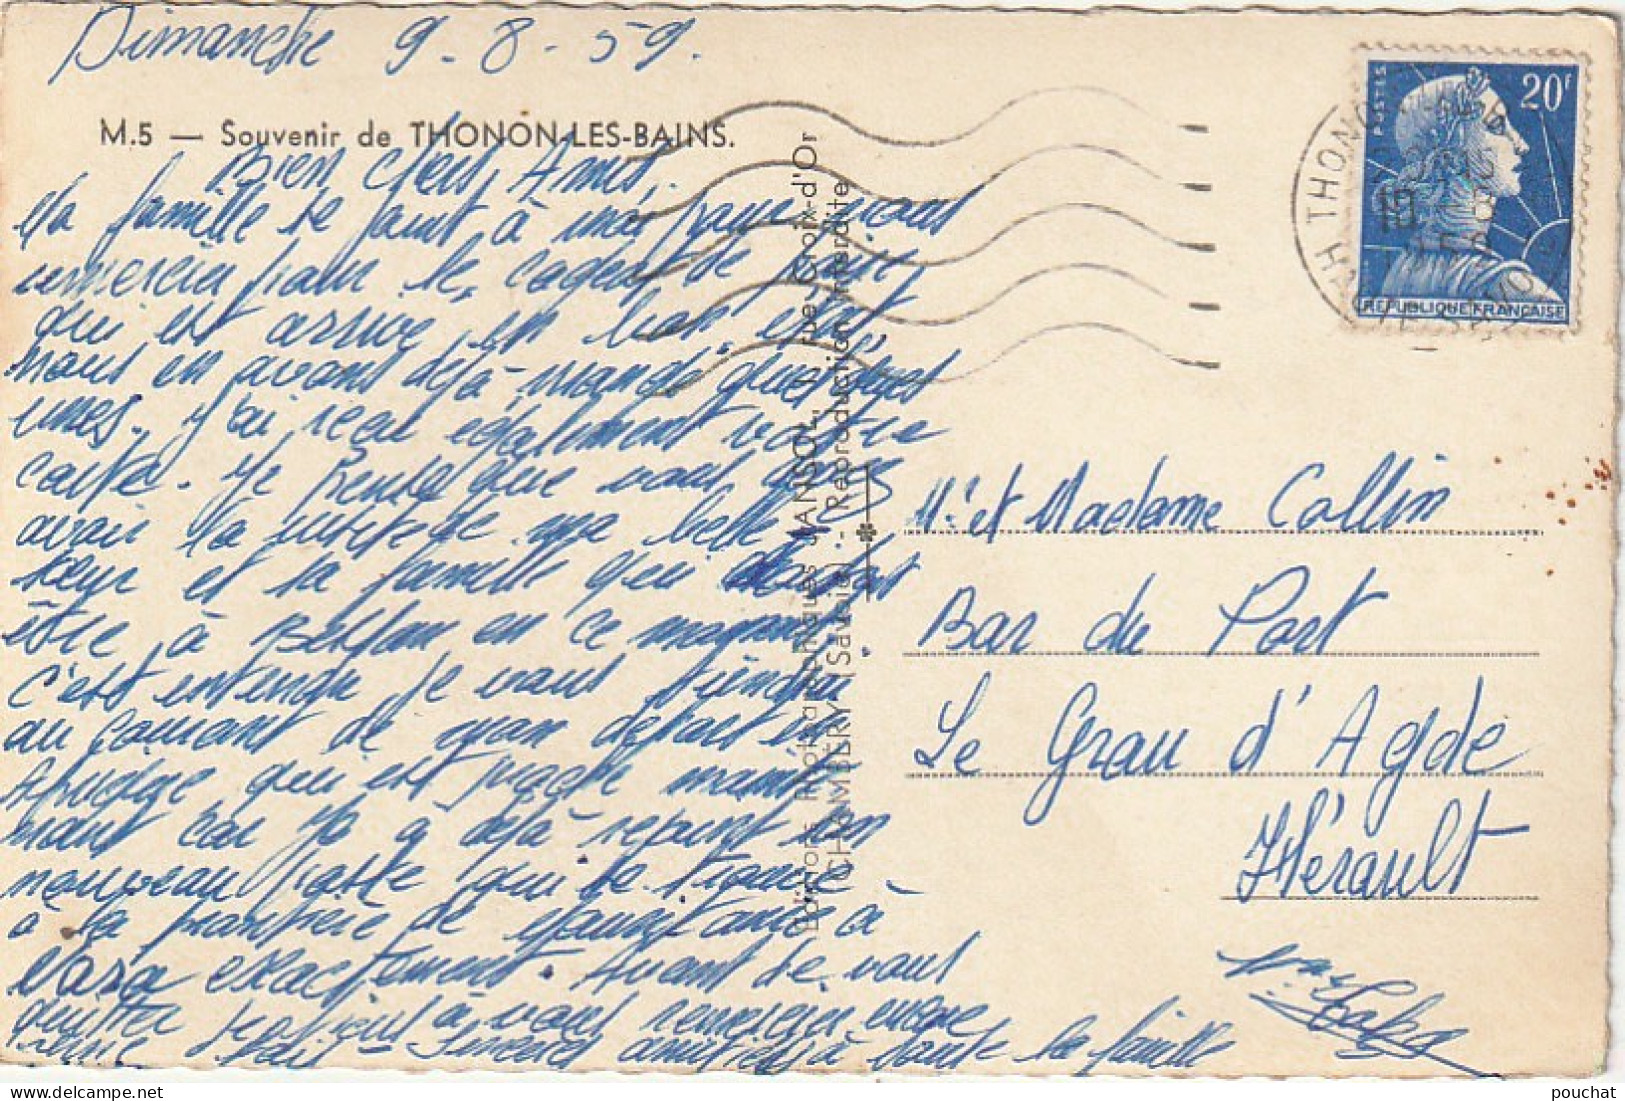 Dimanche 9-8-59.
M.5 — Souvenir de THONON-LES-BAINS.
Bien chers Amis,
La famille se joint à moi pour vous
remercier pour le cageot de
qui est arrivé en bon état
nous en avons déjà mangé quelques
unes. J'ai reçu également votre
carte. Je pense que vous
avoir la visite de ma belle
sœur et sa famille qui
être à en ce moment.
C'est entendu je vous tiendrai
au courant de mon départ en
qui est proche mainte
nant car j'ai déjà rejoint mon
nouveau poste qui se trouve
à la frontière de
exactement. Avant de vous
quitter à vous remercier encore
Sincères amitiés à toute la famille
Editions Photographiques "ANSOL", rue Croix-d'Or
CHAMBÉRY (Savoie) - Reproduction interdite
POSTES
20F
REPUBLIQUE FRANÇAISE
THONON
Mr et Madame Collin
Bar du Port
Le Grau d'Agde
Hérault
pouchat